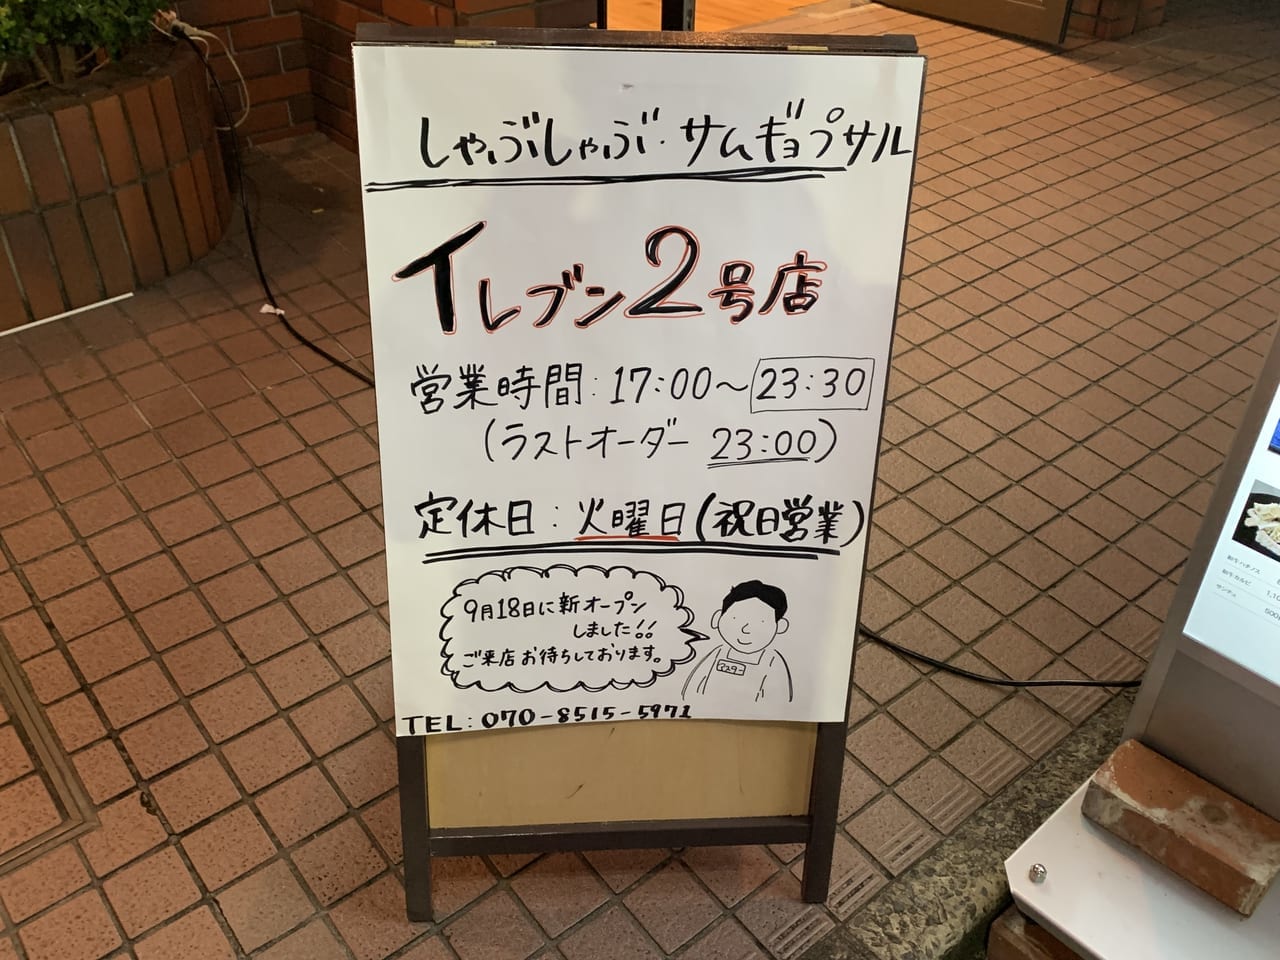 しゃぶしゃぶ・サムギョプサル
イレブン2号店
営業時間:17:00〜23:30
(ラストオーダー 23:00)
定休日:火曜日(祝日営業)
9月18日に新オープン
しました!!
ご来店お待ちしております。
マスター
TEL:070-8515-5971
和牛ハチノス
和牛カルビ 1,10
サンチュ 500